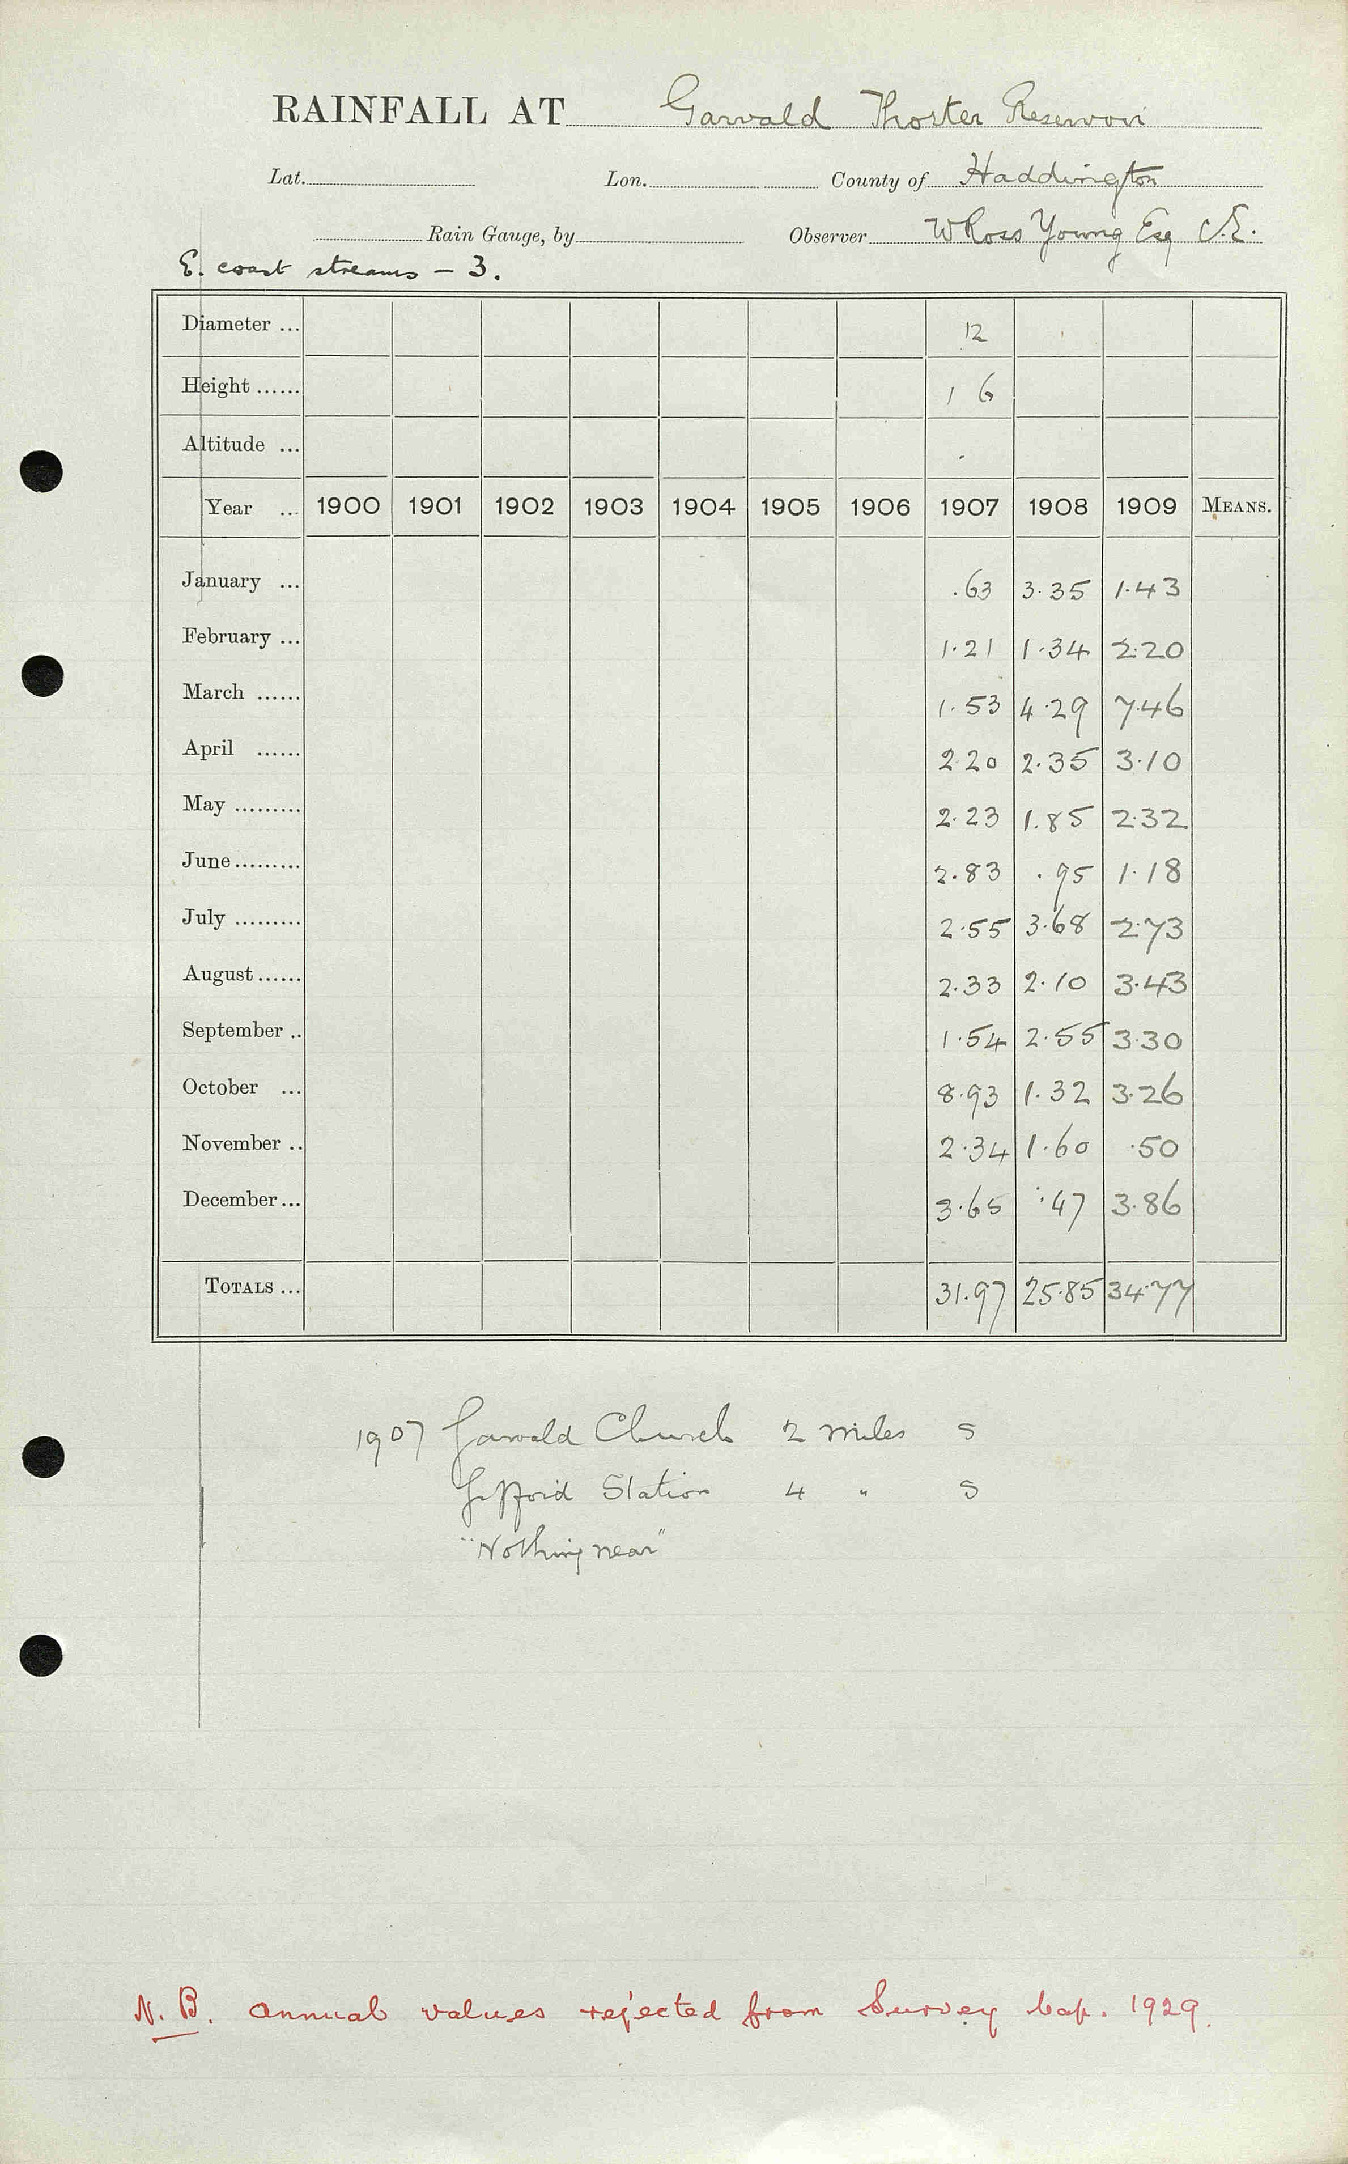 RAINFALL AT Garvald Thorter Reservoir
Lat. Lon. County of Haddington
Rain Gauge, by Observer W Ross Young Esq C.E.
E. coast streams - 3.
Diameter ... 12
Height ...... 1 6
Altitude ...
Year ... 1900 1901 1902 1903 1904 1905 1906 1907 1908 1909 MEANS.
January ... .63 3.35 1.43
February ... 1.21 1.34 2.20
March ...... 1.53 4.29 7.46
April ...... 2.20 2.35 3.10
May ......... 2.23 1.85 2.32
June ......... 2.83 .95 1.18
July ......... 2.55 3.68 2.73
August ...... 2.33 2.10 3.43
September .. 1.54 2.55 3.30
October ... 8.93 1.32 3.26
November .. 2.34 1.60 .50
December ... 3.65 .47 3.86
TOTALS ... 31.97 25.85 34.77
1907 Garvald Church 2 miles S
Gifford Station 4 " S
"Nothing near"
N.B. annual values rejected from Survey 1929.